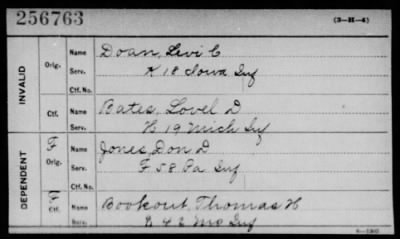 256763 (3-H-4)
INVALID
Orig. Name Doan, Levi C
Serv. K 18 Iowa Inf
Ctf. No.
Ctf. Name Bates, Lovel D
Serv. 19 Mich Inf
DEPENDENT
F Orig. Name Jones, Don D
Serv. F 58 Pa Inf
Ctf. No.
Ctf. Name Bookout, Thomas H
Serv. 42 Mo Inf